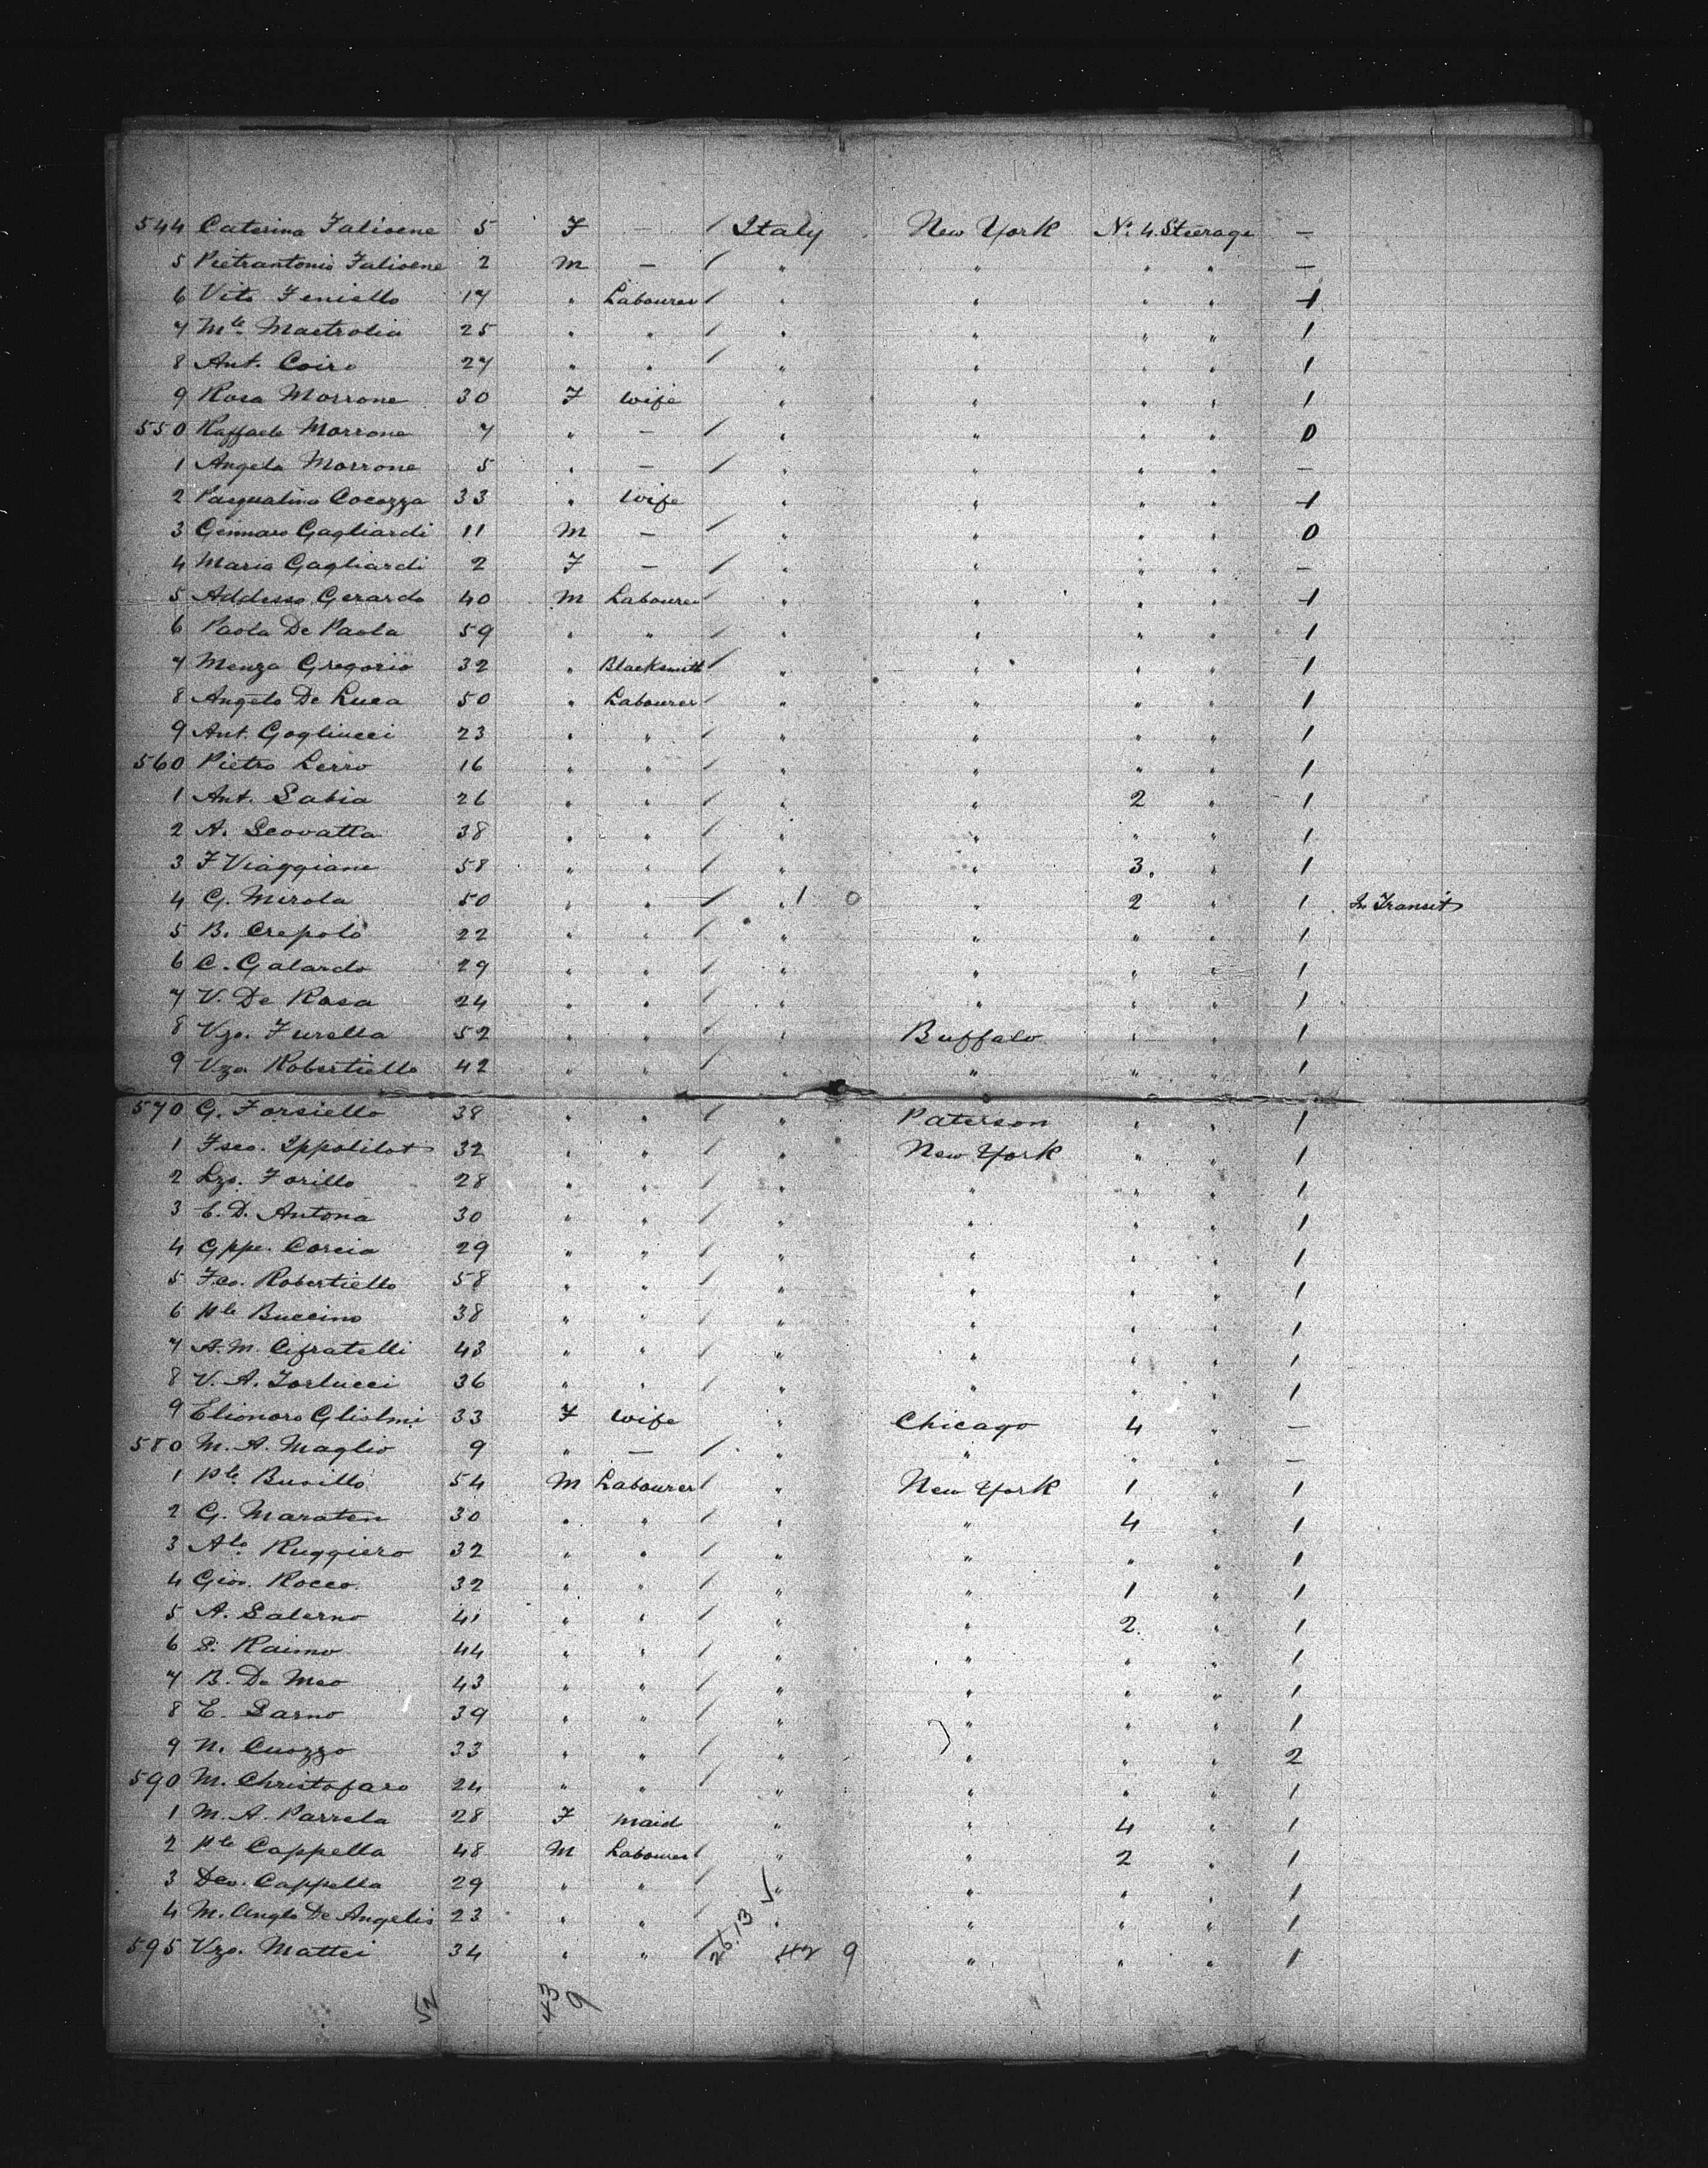 544 Caterina Falivene 5 F — / Italy New York No. 4. Steerage —
5 Pietrantonio Falivene 2 M — / " " " " —
6 Vito Feniello 17 " Labourer / " " " " 1
7 Mle Mastrolia 25 " " / " " " " 1
8 Ant. Coiro 27 " " / " " " " 1
9 Rosa Morrone 30 F Wife " " " " 1
550 Raffaele Morrone 7 " — / " " " " 0
1 Angela Morrone 5 " — / " " " " —
2 Pasqualina Cocozza 33 " Wife " " " " 1
3 Gennaro Gagliardi 11 M — / " " " " 0
4 Maria Gagliardi 2 F — / " " " " —
5 Addesso Gerardo 40 M Labourer " " " " 1
6 Paola De Paola 59 " " / " " " " 1
7 Menza Gregorio 32 " Blacksmith / " " " " 1
8 Angelo De Luca 50 " Labourer / " " " " 1
9 Ant. Gogliucci 23 " " / " " " " 1
560 Pietro Lerro 16 " " / " " " " 1
1 Ant. Labia 26 " " / " " 2 " 1
2 A. Scovatta 38 " " / " " " " 1
3 F Viaggiane 58 " " / " " 3. " 1
4 G. Mirola 50 " " / " 1 0 " 2 " 1 In Transit
5 B. Crepolo 22 " " / " " " " 1
6 C. Galardo 29 " " / " " " " 1
7 V. De Rosa 24 " " / " " " " 1
8 Vzo. Furella 52 " " / " Buffalo " " 1
9 Vzo Robertiello 42 " " / " " " " 1
570 G. Forsiello 38 " " / " Paterson " " 1
1 Fsco. Ippolilot 32 " " / " New York " " 1
2 Lzo. Forillo 28 " " / " " " " 1
3 C. D. Antona 30 " " / " " " " 1
4 Gppe. Corcia 29 " " / " " " " 1
5 F.co. Robertiello 58 " " / " " " " 1
6 Ple Buccino 38 " " / " " " " 1
7 A. M. Cifratelli 43 " " / " " " " 1
8 V. A. Iorlucci 36 " " / " " " " 1
9 Elionora Glislmi 33 F Wife " Chicago 4 " —
580 M. A. Maglio 9 " — / " " " " —
1 Ple Busillo 54 M Labourer / " New York 1 " 1
2 G. Maraten 30 " " / " " 4 " 1
3 Alo Ruggiero 32 " " / " " " " 1
4 Gios. Rocco. 32 " " / " " 1 " 1
5 A. Salerno 41 " " / " " 2. " 1
6 S. Raimo 44 " " / " " " " 1
7 B. De Meo 43 " " / " " " " 1
8 E. Sarno 39 " " / " " " " 1
9 N. Cuozzo 33 " " / " " " " 2
590 M. Christofaro 24 " " / " " " " 1
1 M. A. Parrela 28 F Maid " " 4 " 1
2 Ple Cappella 48 M Labourer / " " 2 " 1
3 Deo. Cappella 29 " " / " " " " 1
4 M. Anglo De Angelis 23 " " / " " " " 1
595 Vzo. Mattei 34 " " / 26.13 ✓ 42 9 " " " 1
52 43 9